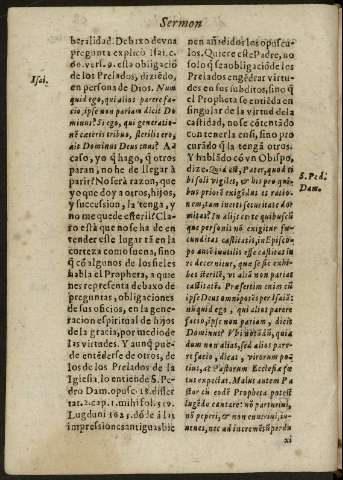 Sermon
beralidad. Debaxo de vna
pregunta explicò Isai. c.
66. vers. 9. esta obligaciõ
de los Prelados, diziẽdo,
en persona de Dios. Num
Isai.
quid ego, qui alios parere fa-
cio, ipse non pariam dicit Do
minus? Si ego, qui generatio-
nẽ cæteris tribuo, sterilis ero,
ait Dominus Deus tuus? Aa
caso, yo q̃ hago, q̃ otros
paran, no he de llegar à
parir? No serà razon, que
yo que doy a otros, hijos,
y succession, la tenga, y
no me quede esteril? Cla-
ro està que no se ha de en
tender este lugar tã en la
corteza como suena, sino
q̃ cõ algunos de los fieles
habla el Propheta, a quie
nes representa debaxo de
preguntas, obligaciones
de sus oficios, en la gene-
racion espiritual de hijos
de la gracia, por medio de
las virtudes. Y aunq̃ pue-
de entẽderse de otros, de
los de los Prelados de la
Iglesia, lo entiende S. Pe-
dro Dam. opusc. 18. disser
tat. 2. cap. 1. mihi fol. 519.
Lugduni 1623. dõde à las
impressiones antiguas bie
nen añadidos los opuscu-
los. Quiere este Padre, no
solo q̃ sea obligaciõ de los
Prelados engẽdrar virtu-
des en sus subditos, sino q̃
el Propheta se entiẽda en
singular de la virtud de la
castidad, no se cõtentãdo
con tenerla en sì, sino pro
curãdo q̃ la tengã otros.
Y hablãdo cõ vn Obispo,
dize. Quia est, Pater, quod ti
S. Ped.
bi soli vigiles, & his pro qui-
Dam.
bus priorẽ exigẽdus es ratio-
nem, tam inerti securitate dor
mitas? In alijs certe quibuscũ
que personis nõ exigitur fœ-
cunditas castitatis, in Episco-
po autẽ inutilis esse castitas iu
re decernitur, quæ se sic exhi-
bet sterilẽ, vt aliã non pariat
castitatẽ. Præsertim enim cũ
ipse Deus omnipotẽs per Isaiã:
nũquid ego, qui alios parere
facio, ipse non pariam, dicit
Dominus? Vbi notãdũ, quia
dum non alias, sed alios pare-
re facio, dicas, virorum po-
tius, ac Pastorum Ecclesiæ fæ
tus expectat. Malus autem Pa
stor cũ eodẽ Propheta potest
lugẽdo cantare: nõ parturini,
nõ peperi, & non enutrini, iu-
uenes, nec ad incremẽtũ perdu
xi